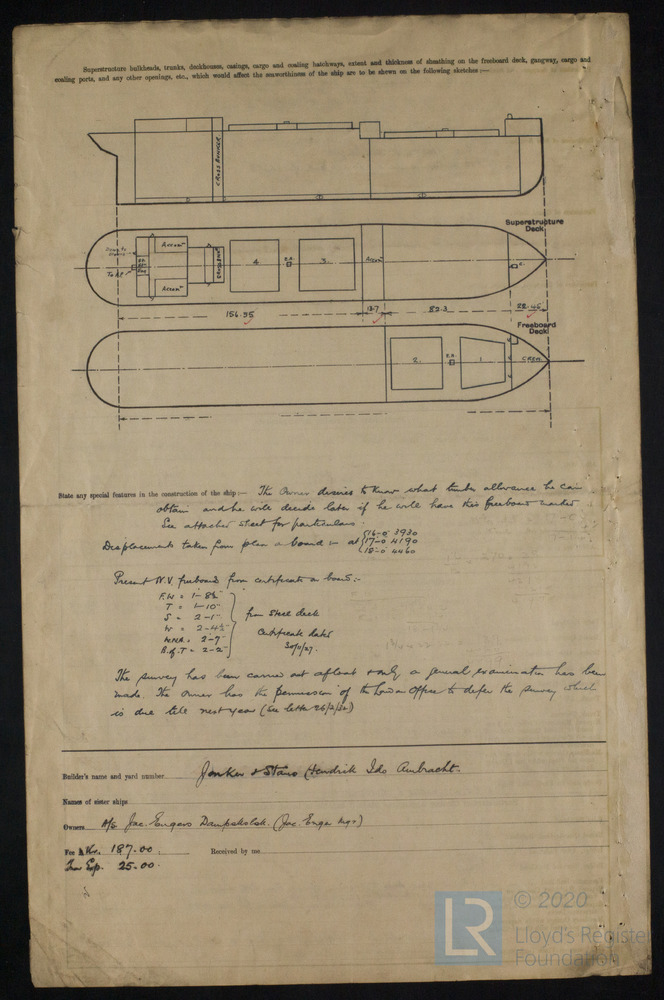 Superstructure bulkheads, trunks, deckhouses, casings, cargo and coaling hatchways, extent and thickness of sheathing on the freeboard deck, gangway, cargo and
coaling ports, and any other openings, etc., which would affect the seaworthiness of the ship are to be shewn on the following sketches :—
CROSS BUNKER
Superstructure
Deck
Accomn
4
3
Accomn
Accomn
156.95
13.7
82.3
22.45
Freeboard
Deck
2
1
CREW
State any special features in the construction of the ship :— The Owner desires to know what timber allowance he can
obtain and he will decide later if he will have this freeboard marked
See attached sheet for particulars
Displacements taken from plan on board at 16-0 3930
17-0 4190
18-0 4460
Present N.V freeboard from certificate on board:-
F.W = 1-8½"
T = 1-10"
S = 2-1"
W = 2-4½"
W.N.A. = 2-7"
B.of.T = 2-2"
from Steel deck
Certificate dated
The survey has been carried out afloat & only a general examination has been
made. The owner has the permission of the London Office to defer the survey which
is due till next year (See letter 26/2/32)
Builder's name and yard number Jonker & Stans Hendrik Ido Ambracht.
Names of sister ships
Owners A/S Jac. Engers Dampskslsk. (Jac. Enge Mgr)
Fee Kr. 187.00 Received by me
Exp. 25.00
LR
© 2020
Lloyd's Register
Foundation